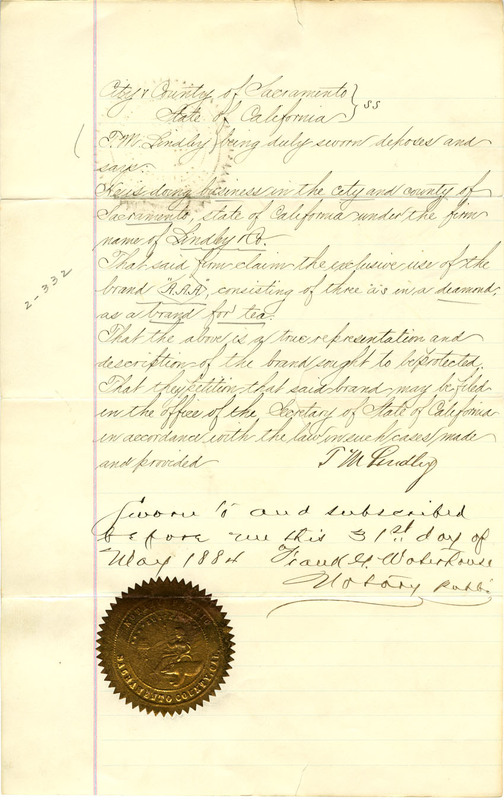 City & County of Sacramento } ss
State of California
T. M. Lindley being duly sworn deposes and
says.
He is doing business in the city and county of
Sacramento, state of California under the firm
name of Lindley & Co.
That said firm claim the exclusive use of the
brand "A.A.A", consisting of three a's in a diamond,
as a brand for tea.
That the above is a true representation and
description of the brand sought to be protected.
That they petition that said brand may be filed
in the office of the Secretary of State of California
in accordance with the law in such cases made
and provided T M Lindley
2-332
Sworn to and subscribed
before me this 31st day of
May 1884 Frank G. Waterhouse
Notary Public
SACRAMENTO COUNTY, CAL.